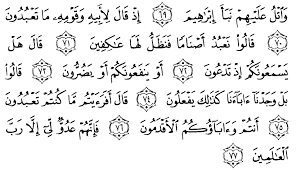 وَٱتْلُ عَلَيْهِمْ نَبَأَ إِبْرَٰهِيمَ ﴿٦٩﴾ إِذْ قَالَ لِأَبِيهِ وَقَوْمِهِۦ مَا تَعْبُدُونَ
﴿٧٠﴾ قَالُوا۟ نَعْبُدُ أَصْنَامًا فَنَظَلُّ لَهَا عَـٰكِفِينَ ﴿٧١﴾ قَالَ هَلْ
يَسْمَعُونَكُمْ إِذْ تَدْعُونَ ﴿٧٢﴾ أَوْ يَنفَعُونَكُمْ أَوْ يَضُرُّونَ ﴿٧٣﴾ قَالُوا۟
بَلْ وَجَدْنَآ ءَابَآءَنَا كَذَٰلِكَ يَفْعَلُونَ ﴿٧٤﴾ قَالَ أَفَرَءَيْتُم مَّا كُنتُمْ تَعْبُدُونَ
﴿٧٥﴾ أَنتُمْ وَءَابَآؤُكُمُ ٱلْأَقْدَمُونَ ﴿٧٦﴾ فَإِنَّهُمْ عَدُوٌّ لِّىٓ إِلَّا رَبَّ
ٱلْعَـٰلَمِينَ ﴿٧٧﴾